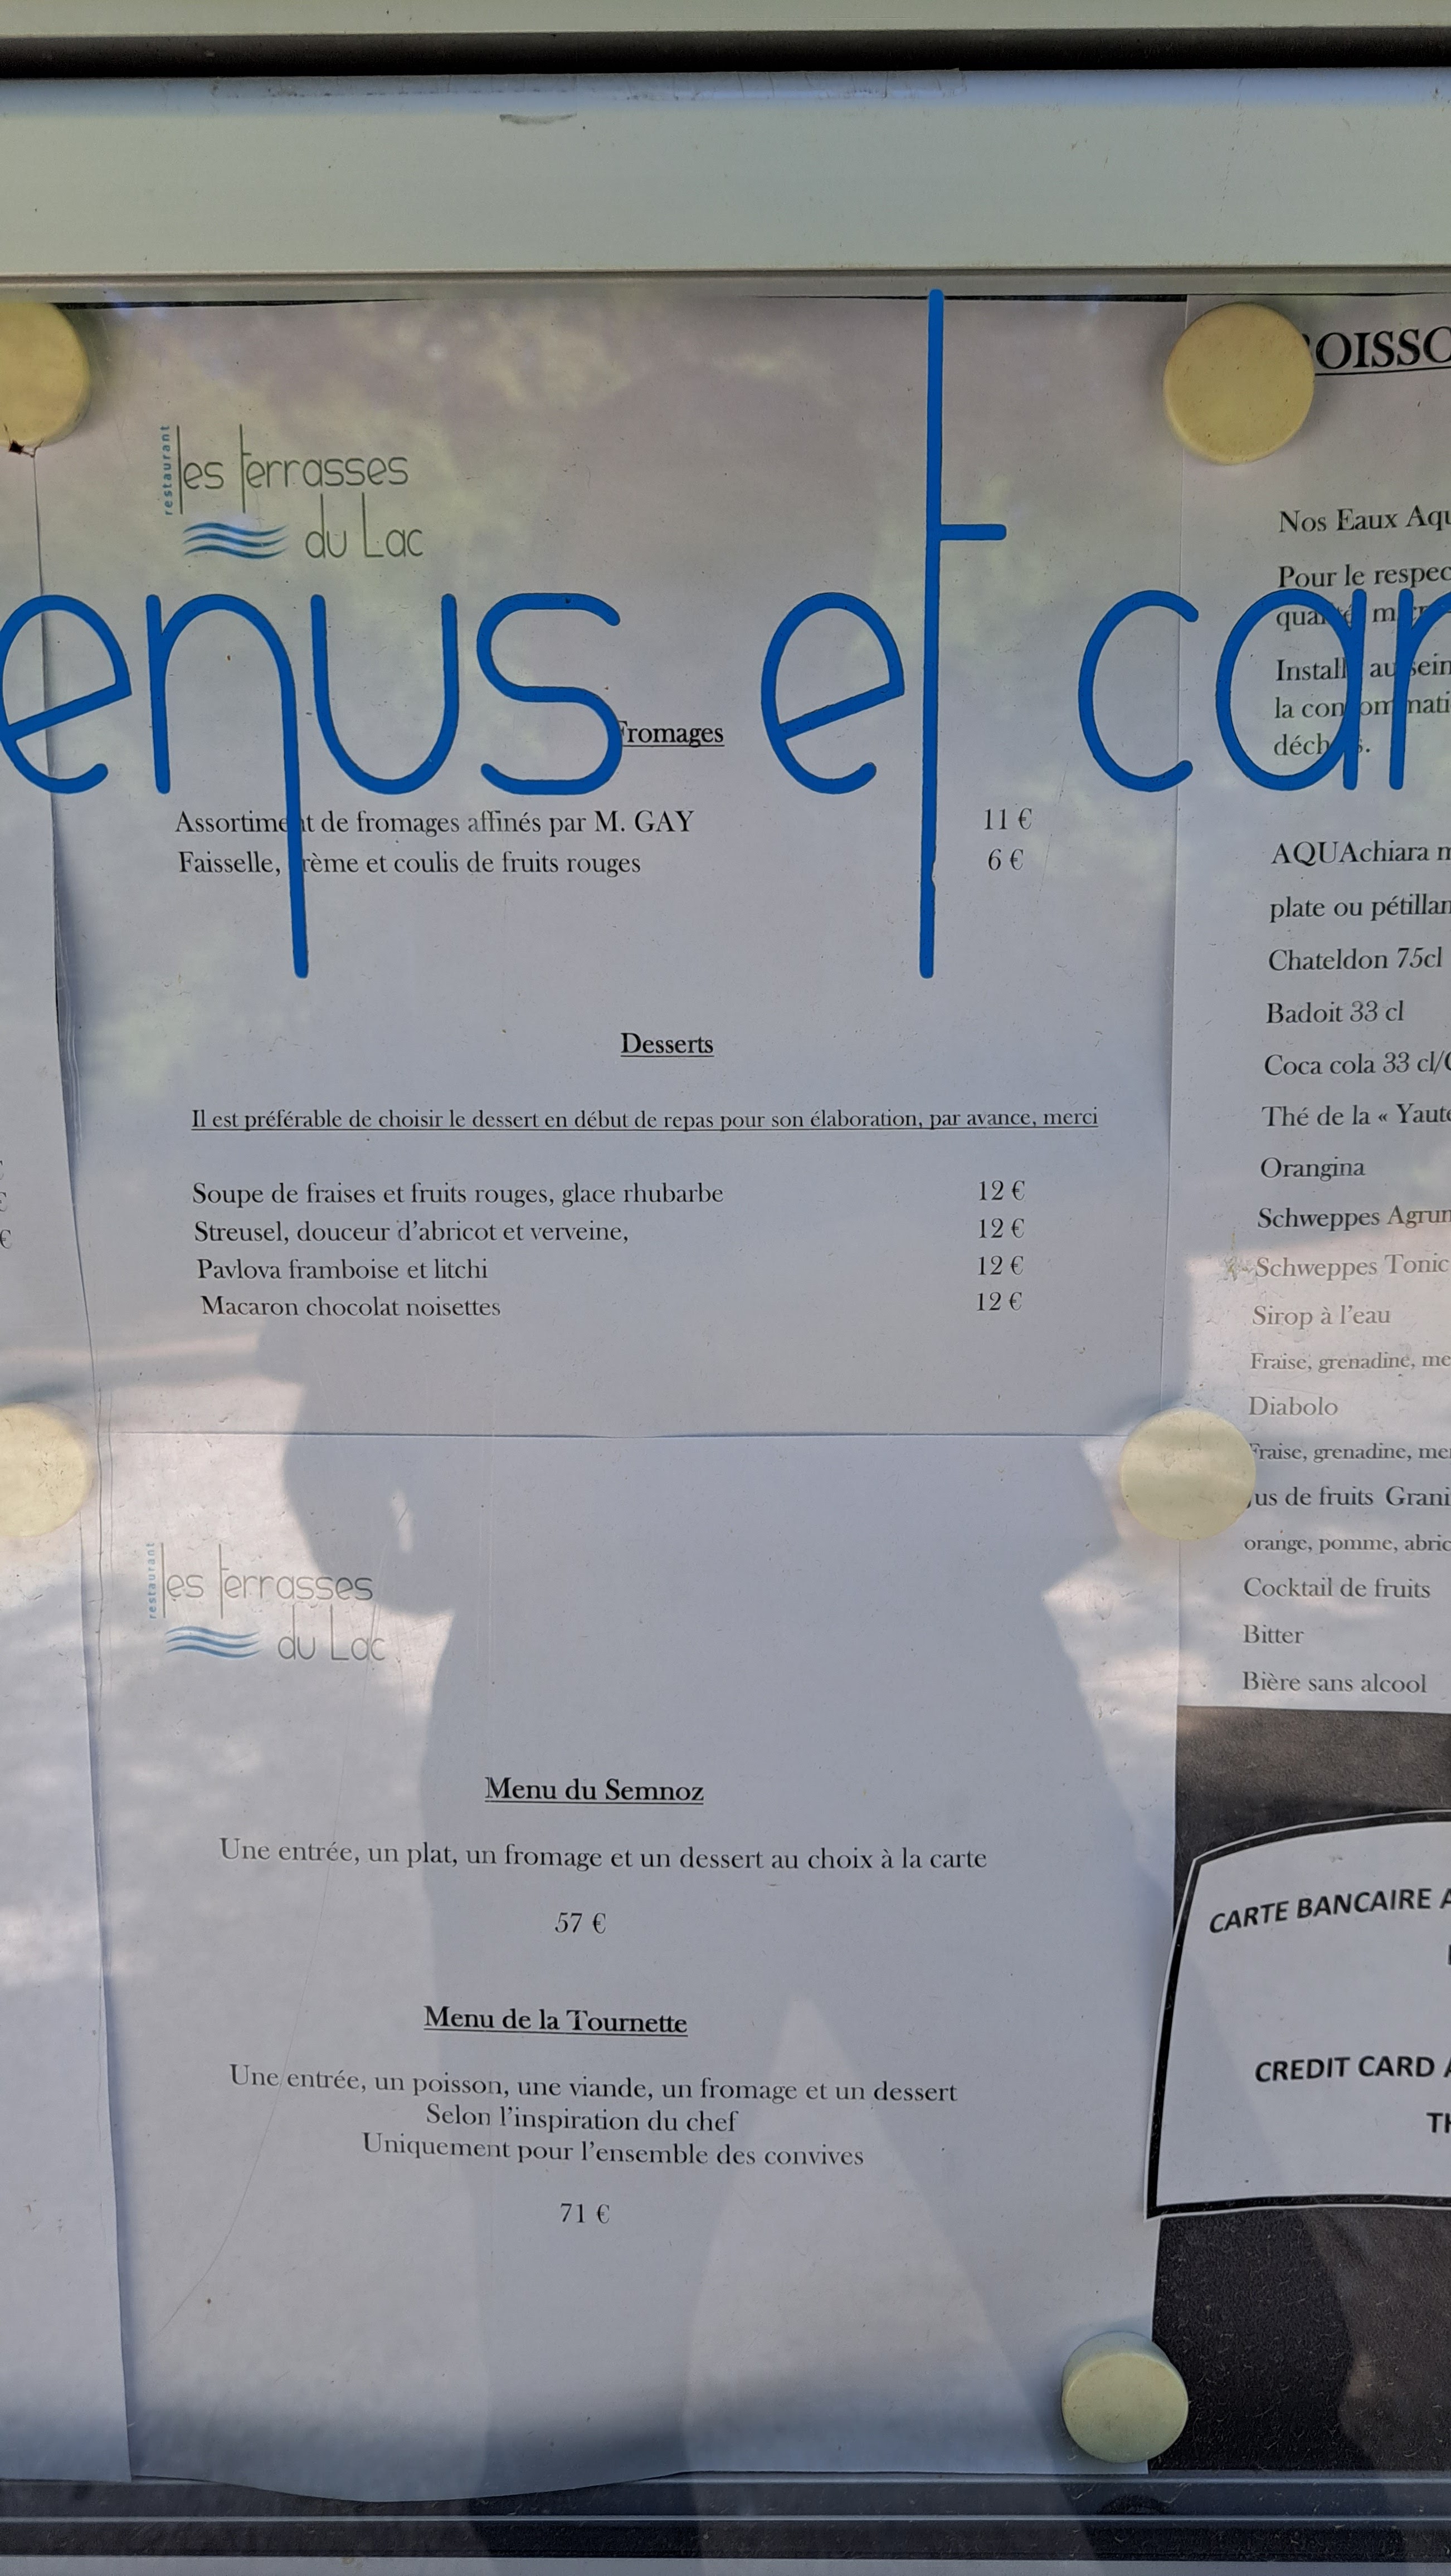 enus et car
restaurant
les terrasses
du Lac
Fromages
Assortiment de fromages affinés par M. GAY 11 €
Faisselle, crème et coulis de fruits rouges 6 €
Desserts
Il est préférable de choisir le dessert en début de repas pour son élaboration, par avance, merci
Soupe de fraises et fruits rouges, glace rhubarbe 12 €
Streusel, douceur d'abricot et verveine, 12 €
Pavlova framboise et litchi 12 €
Macaron chocolat noisettes 12 €
restaurant
les terrasses
du Lac
Menu du Semnoz
Une entrée, un plat, un fromage et un dessert au choix à la carte
57 €
Menu de la Tournette
Une entrée, un poisson, une viande, un fromage et un dessert
Selon l'inspiration du chef
Uniquement pour l'ensemble des convives
71 €
€
€
€
OISSO
Nos Eaux Aqu
Pour le respec
Install au sein
la consommati
déchets.
AQUAchiara m
plate ou pétillan
Chateldon 75cl
Badoit 33 cl
Coca cola 33 cl/
Thé de la « Yaute
Orangina
Schweppes Agrum
Schweppes Tonic
Sirop à l'eau
Fraise, grenadine, me
Diabolo
Fraise, grenadine, me
Jus de fruits Grani
orange, pomme, abric
Cocktail de fruits
Bitter
Bière sans alcool
CARTE BANCAIRE A
CREDIT CARD A
TH